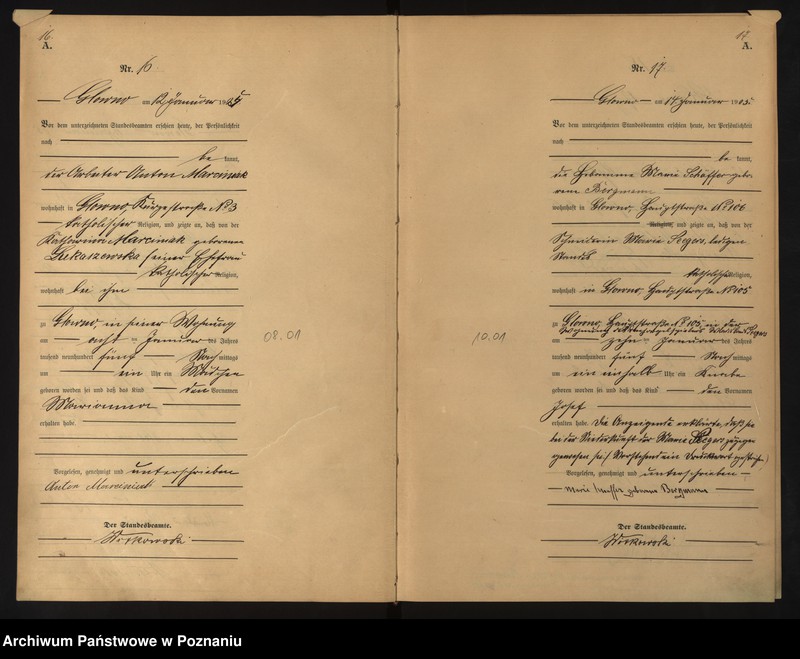 16.
A.
Nr. 16
Glowno am 12 Januar 1905
Vor dem unterzeichneten Standesbeamten erschien heute, der Persönlichkeit
nach
be kannt,
der Arbeiter Anton Marciniak
wohnhaft in Glowno, No 3
katholischer Religion, und zeigte an, daß von der
Katharina Marciniak geborenen
seiner Ehefrau
katholischer Religion,
wohnhaft bei ihm
zu Glowno, in seiner Wohnung
am acht ten Januar des Jahres
tausend neunhundert fünf Nach mittags
um ein Uhr ein Mädchen
geboren worden sei und daß das Kind den Vornamen
Marianna
erhalten habe.
Vorgelesen, genehmigt und unterschrieben
Anton Marciniak
Der Standesbeamte.
Witkowski
08.01
17.
A.
Nr. 17.
Glowno am 14 Januar 1905.
Vor dem unterzeichneten Standesbeamten erschien heute, der Persönlichkeit
nach
be kannt,
die Hebamme Marie Schäffer gebo-
rene Bergmann
wohnhaft in Glowno, Hauptstraße No 106
Religion, und zeigte an, daß von der
Schneiderin Marie Regers, ledigen
Standes
katholischer Religion,
wohnhaft in Glowno, Hauptstraße No 105
zu Glowno, Hauptstraße No 105, in der
Wohnung des Regers
am zehn ten Januar des Jahres
tausend neunhundert fünf Nach mittags
um ein einhalb Uhr ein Knabe
geboren worden sei und daß das Kind den Vornamen
Josef
erhalten habe. Die Anzeigende erklärte, daß sie
bei der Niederkunft der Marie Regers zugegen
gewesen sei. (Vorstehend ein Druckwort gestrichen)
Vorgelesen, genehmigt und unterschrieben
Marie Schäffer geborene Bergmann
Der Standesbeamte.
Witkowski
10.01
Archiwum Państwowe w Poznaniu